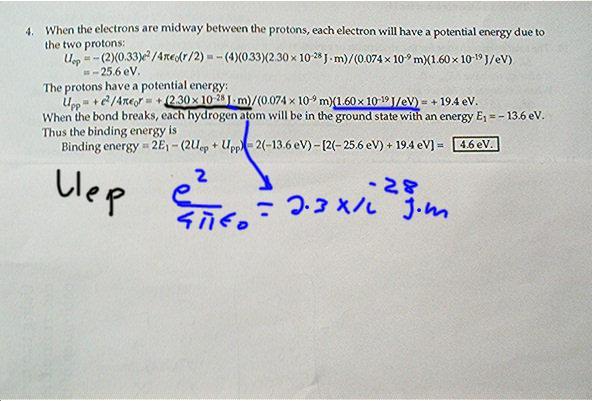 4. When the electrons are midway between the protons, each electron will have a potential energy due to
the two protons:
Uep = – (2)(0.33)e²/4πϵ₀(r/2) = – (4)(0.33)(2.30 × 10⁻²⁸ J·m)/(0.074 × 10⁻⁹ m)(1.60 × 10⁻¹⁹ J/eV)
= – 25.6 eV.
The protons have a potential energy:
Upp = + e²/4πϵ₀r = + (2.30 × 10⁻²⁸ J·m)/(0.074 × 10⁻⁹ m)(1.60 × 10⁻¹⁹ J/eV) = + 19.4 eV.
When the bond breaks, each hydrogen atom will be in the ground state with an energy E₁ = – 13.6 eV.
Thus the binding energy is
Binding energy = 2E₁ – (2Uep + Upp) = 2(–13.6 eV) – [2(– 25.6 eV) + 19.4 eV] = 4.6 eV.
Uep e²/4πϵ₀ = 2.3 x10⁻²⁸ J.m